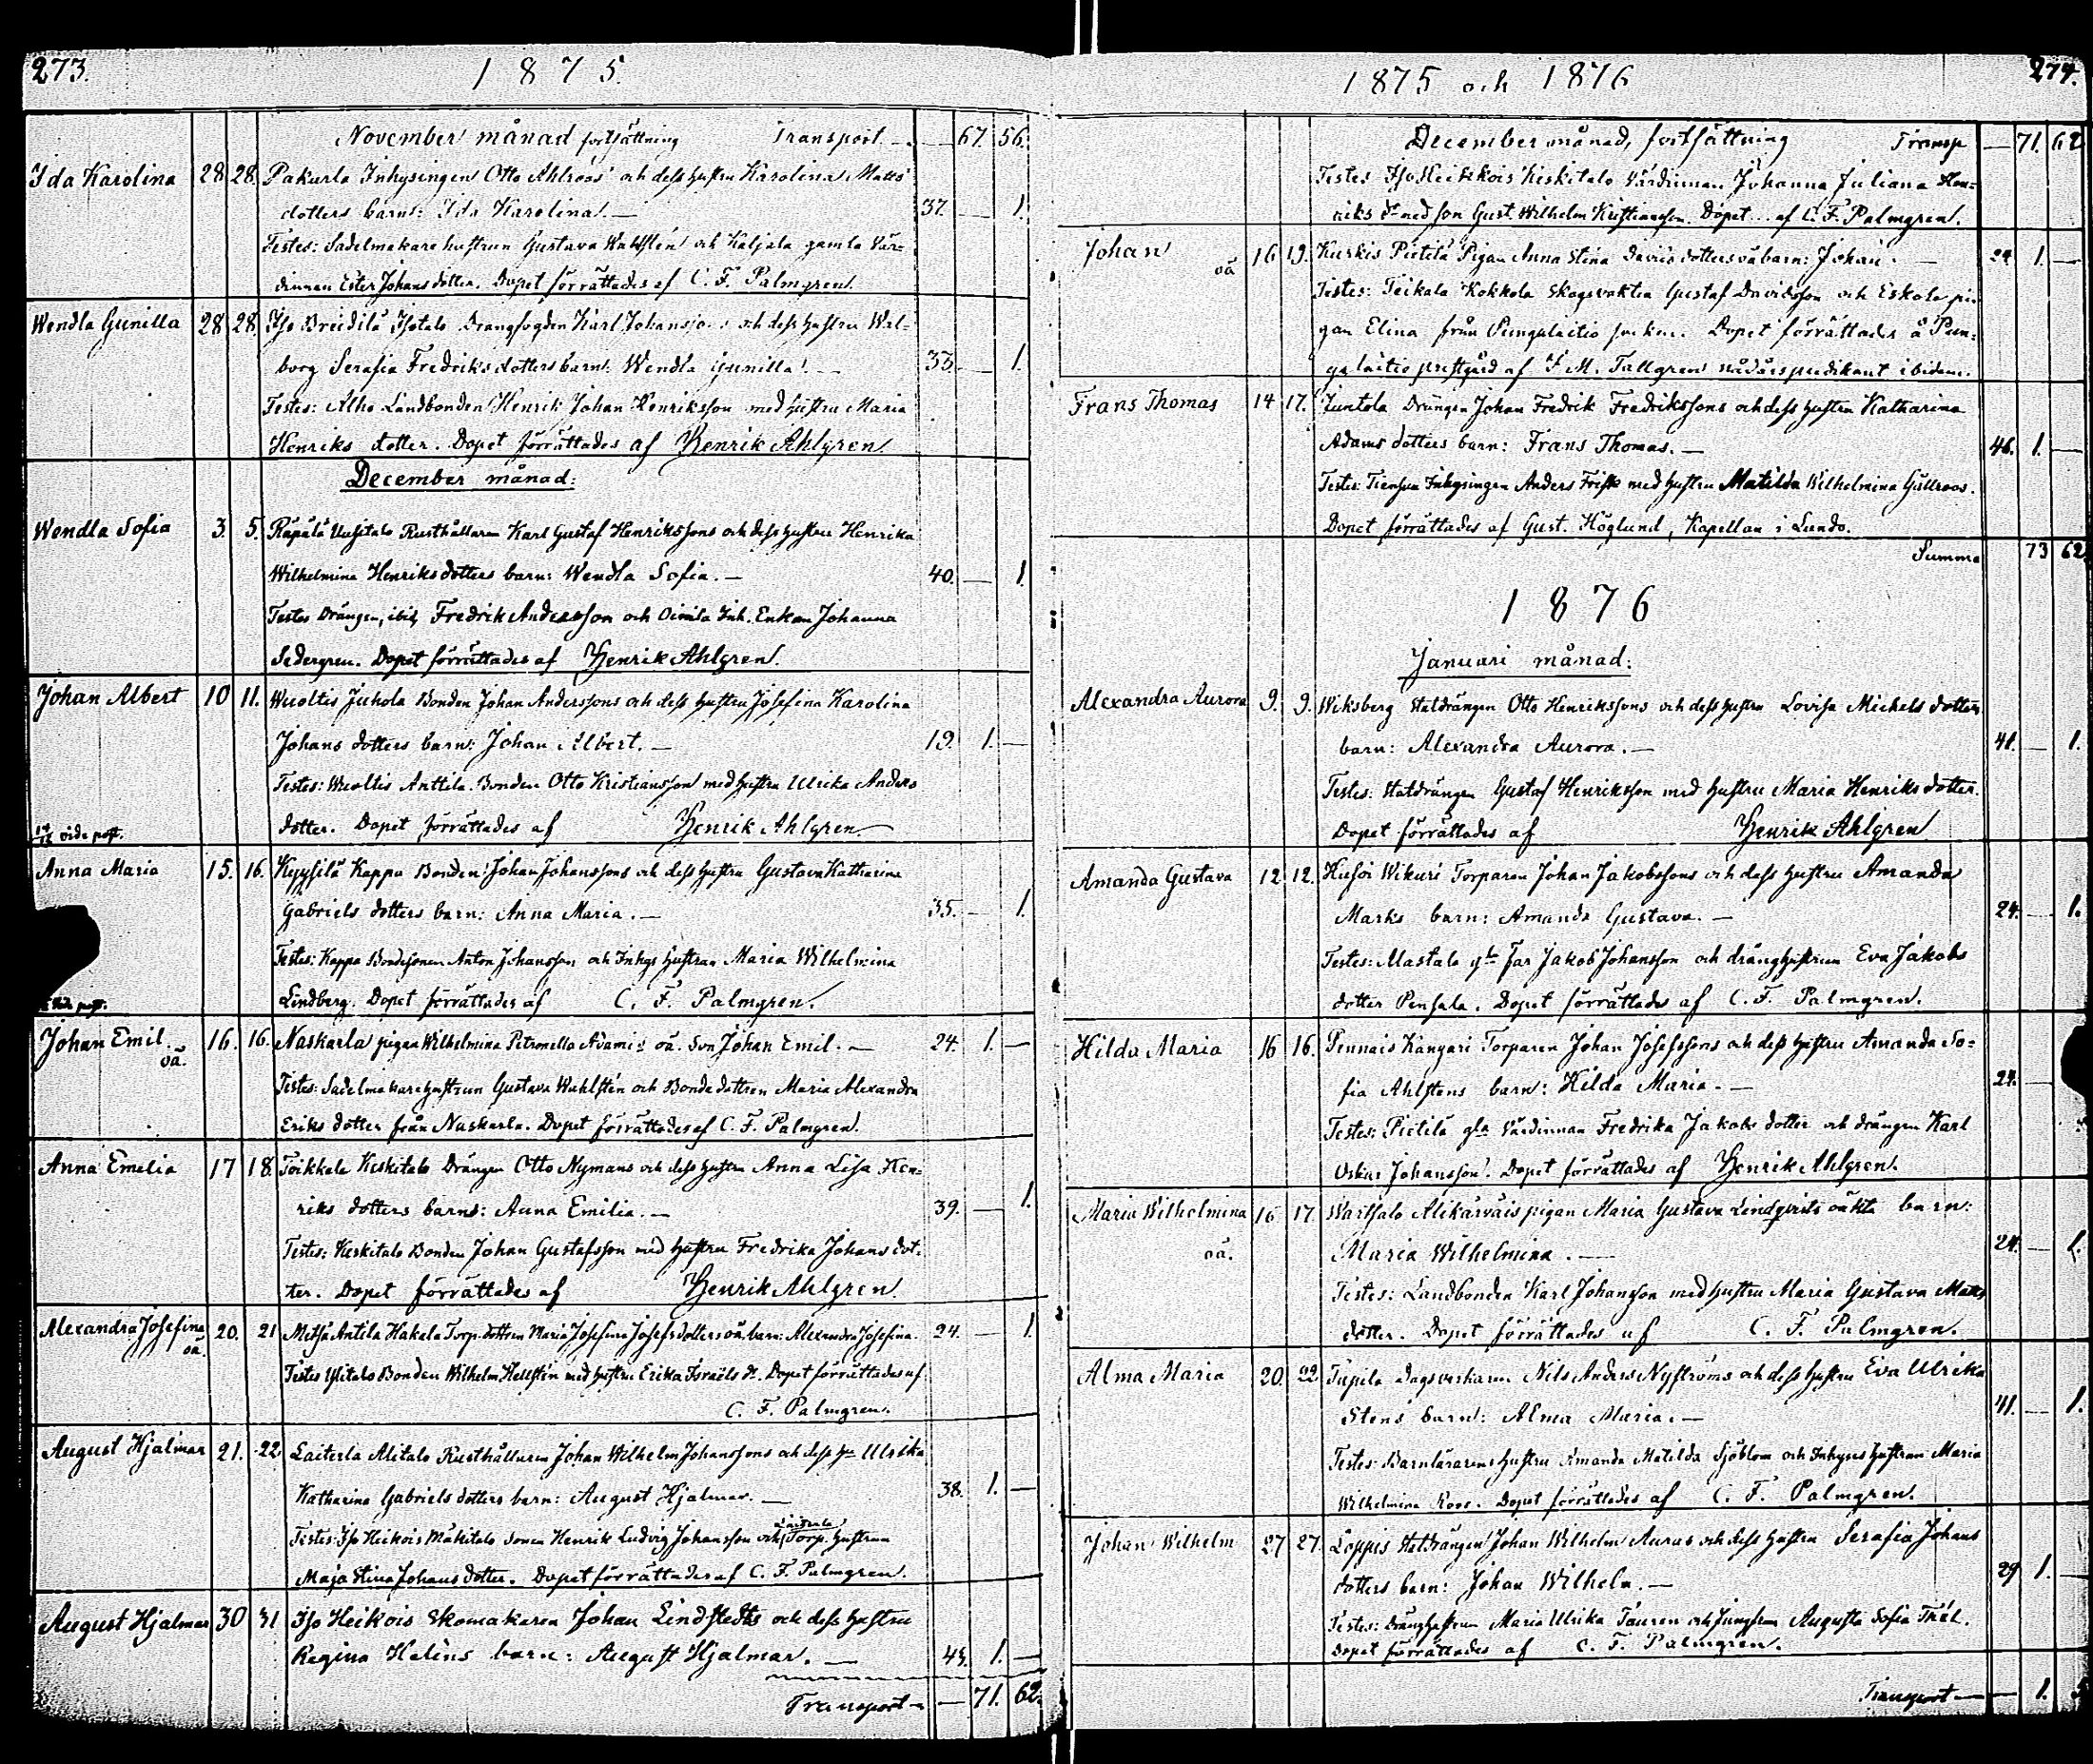 273.
1875.
November månad fortsättning Transport - 67. 56.
Ida Karolina 28 28. Pakurla Inhysingen Otto Ahlroos' och dess hustru Karolina Matts
dotters barn: Ida Karolina. — 37. — 1.
Testes: Sadelmakare hustrun Gustava Wahlstén och Kaljala gamla Vär-
dinnan Ester Johans dotter. Dopet förrättades af C. F. Palmgren.
Wendla Gunilla 28 28. Iso Breidilä Isotalo Drängfogden Karl Johanssons och dess hustru Wal-
borg Serafia Fredriks dotters barn: Wendla Gunilla. — 33. — 1.
Testes: Alho Landbonden Henrik Johan Henriksson med hustru Maria
Henriks dotter. Dopet förrättades af Henrik Ahlgren.
December månad:
Wendla Sofia 3. 5. Räpälä Uusitalo Rusthållaren Karl Gustaf Henrikssons och dess hustru Henrika
Wilhelmina Henriks dotters barn: Wendla Sofia. — 40. — 1.
Testes Drängen, ibid, Fredrik Andersson och Oinila Inh. Enkan Johanna
Sedergren. Dopet förrättades af Henrik Ahlgren.
Johan Albert 10 11. Wuoltis Juhola Bonden Johan Anderssons och dess hustru Josefina Karolina
Johans dotters barn: Johan Albert. — 19. 1. —
Testes: Wuoltis Anttila Bonden Otto Kristiansson med hustru Ulrika Anders
dotter. Dopet förrättades af Henrik Ahlgren
14/12 vide post.
Anna Maria 15. 16. Kyysilä Kappa Bonden Johan Johanssons och dess hustru Gustava Katharina
Gabriels dotters barn: Anna Maria. — 35. — 1.
Testes: Kappa Bondesonen Anton Johansson och Inhys hustran Maria Wilhelmina
Lindberg. Dopet förrättades af C. F. Palmgren.
vide post.
Johan Emil. 16. 16. Naskarla pigan Wilhelmina Petronella Adami d. oä. Son Johan Emil. — 24. 1. —
oä.
Testes: Sadelmakarehustrun Gustava Wahlstén och Bondedottren Maria Alexandra
Eriks dotter från Naskarla. Dopet förrättades af C. F. Palmgren.
Anna Emilia 17 18. Toikkala Keskitalo Drängen Otto Nymans och dess hustru Anna Lisa Hen-
riks dotters barn: Anna Emilia. — 39. — 1.
Testes: Keskitalo Bonden Johan Gustafsson med hustru Fredrika Johans dot-
ter. Dopet förrättades af Henrik Ahlgren
Alexandra Josefina 20. 21 Metsä Antila Hakala Torp. dottren Maria Josefina Josefs dotters oä barn: Alexandra Josefina. 24. — 1.
oä.
Testes Ylitalo Bonden Wilhelm Hellstén med hustru Erika Israels d. Dopet förrättades af
C. F. Palmgren.
August Hjalmar 21. 22 Laiterla Alitalo Rusthållaren Johan Wilhelm Johanssons och dess hu Ulrika
Katharina Gabriels dotters barn: August Hjalmar. — 38. 1. —
Laiterla
Testes: Iso Heikois Mäkitalo Sonen Henrik Ludvig Johansson och Torp. hustrun
Maja Stina Johans dotter. Dopet förrättades af C. F. Palmgren.
August Hjalmar 30 31 Iso Heikois Skomakaren Johan Lindstedts och dess hustru
Regina Heléns barn: August Hjalmar. — 1. —
Transport — 71. 62.
274.
1875 och 1876
December månad, fortsättning Transp — 71. 62
Testes Iso Heikkois Keskitalo Värdinnan Johanna Juliana Hen-
riks dr med son Gust. Wilhelm Kristiansson. Dopet .. af C. F. Palmgren.
Johan 16 19. Kurkis Pietilä Pigan Anna Stina Davids dotters oä barn: Johan. — 1. —
oä
Testes: Teikala Kokkola Skogsvakten Gustaf Davidsson och Eskola pi-
gan Elina från Pungalaitio socken. Dopet förrättades å Pun-
galaitio prestgård af F. M. Tallgren nådårspredikant ibidem.
Frans Thomas 14 17. Juntola Drängen Johan Fredrik Fredrikssons och dess hustru Katharina
Adams dotters barn: Frans Thomas. — 46. 1. —
Testes: Tiensuu Inhysingen Anders Frisk med hustru Matilda Wilhelmina Gullroos.
Dopet förrättades af Gust. Höglund, Kapellan i Lundo.
Summa 73 62
1876
Januari månad:
Alexandra Aurora 9. 9. Wiksberg Statdrängen Otto Henrikssons och dess hustru Lovisa Michels dotters
barn: Alexandra Aurora. — 41. — 1.
Testes: Statdrängen Gustaf Henriksson med hustru Maria Henriks dotter.
Dopet förrättades af Henrik Ahlgren
Amanda Gustava 12 12. Huhoi Wikuri Torparen Johan Jakobssons och dess hustru Amanda
Marks barn: Amanda Gustava. — 24. — 1.
Testes: Mastalo gle Far Jakob Johansson och dränghustrun Eva Jakobs
dotter Pensala. Dopet förrättades af C. F. Palmgren.
Hilda Maria 16 16. Pennais Kangari Torparen Johan Josefssons och dess hustru Amanda So-
fia Ahlstens barn: Hilda Maria. — 24. —
Testes: Pietilä gla Värdinnan Fredrika Jakobs dotter och drängen Karl
Oskar Johansson. Dopet förrättades af Henrik Ahlgren.
Maria Wilhelmina 16 17. Wartsalo Alikärväis pigan Maria Gustava Lindqvists oäkta barn:
oä.
Maria Wilhelmina. — 24. — 1.
Testes: Landbonden Karl Johansson med hustru Maria Gustava Matts
dotter. Dopet förrättades af C. F. Palmgren.
Alma Maria 20. 22. Tupila Dagsverkaren Nils Anders Nyströms och dess hustru Eva Ulrika
Stens barn: Alma Maria. — 41. — 1.
Testes: Barnlärarens hustru Amanda Matilda Sjöblom och Inhyses hustrun Maria
Wilhelmina Roos. Dopet förrättades af C. F. Palmgren.
Johan Wilhelm 27 27. Loppis Statdrängen Johan Wilhelm Auras och dess hustru Serafia Johans
dotters barn: Johan Wilhelm. — 29 1. —
Testes: Dränghustrun Maria Ulrika Tauren och Jungfrun Augusta Sofia Thél.
Dopet förrättades af C. F. Palmgren.
Transport — 1.